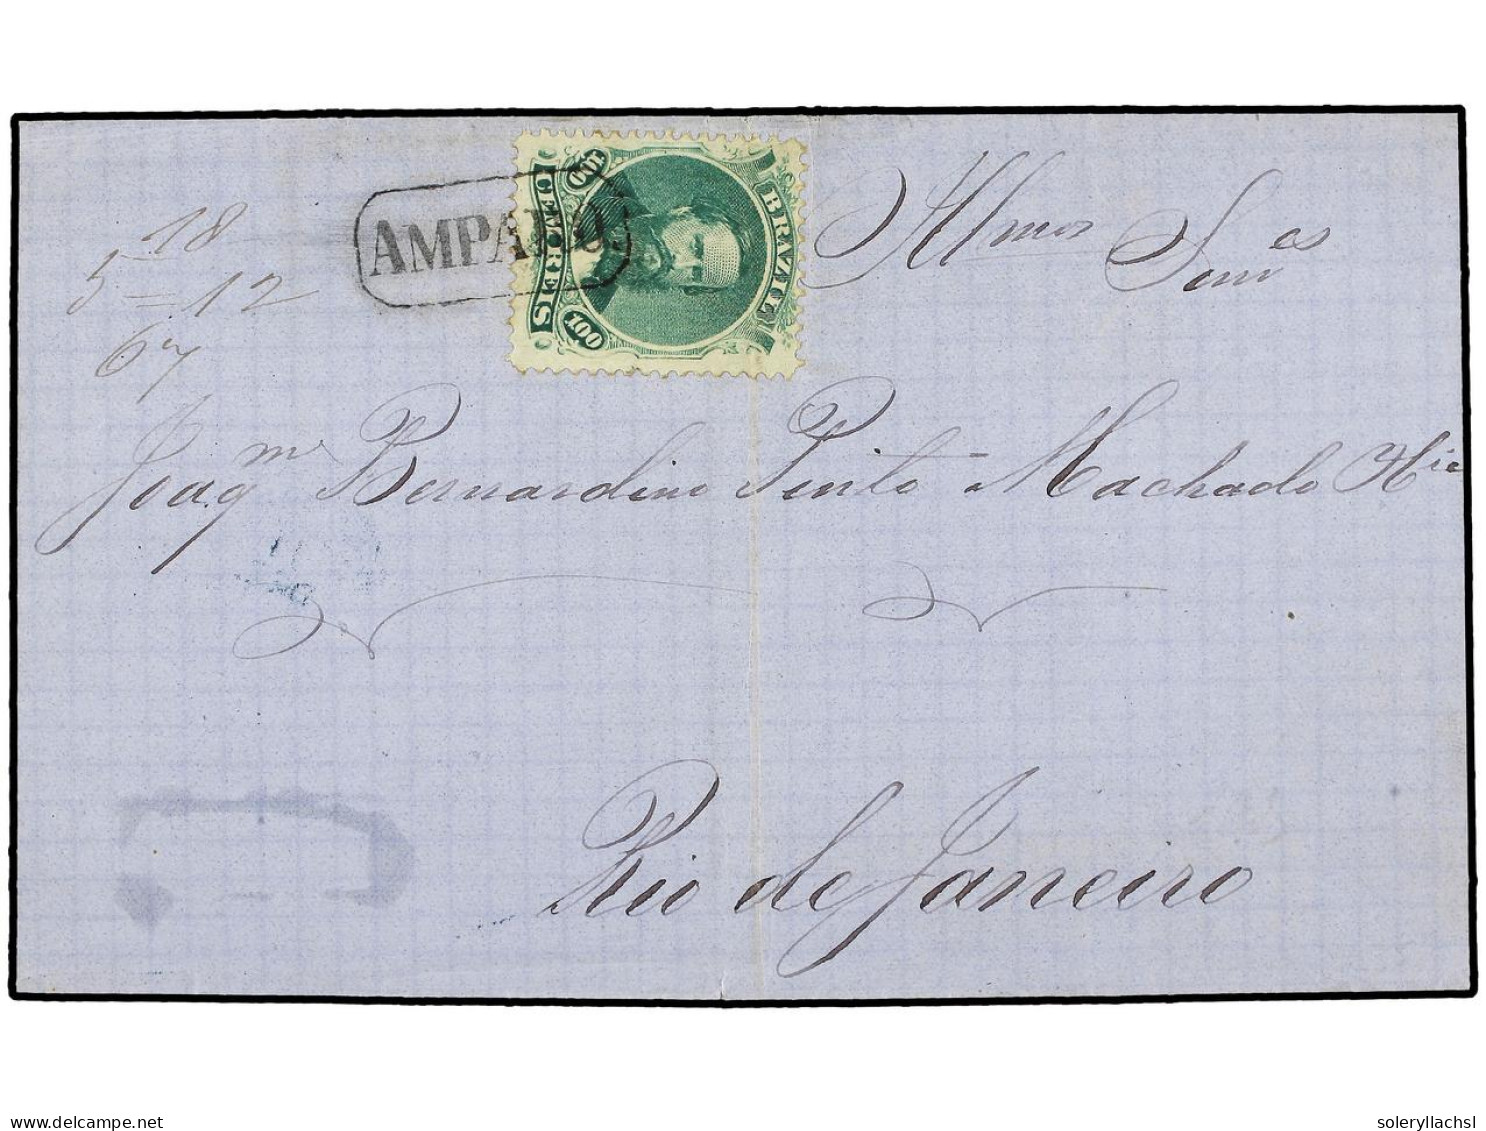 AMPARO.
BRAZIL
CEM REIS
100
100
18
5 = 12
67
Illmos Senres
Joaqm Bernardino Pinto Machado & Cia
Rio de Janeiro
delcampe.net
soleryllachsl